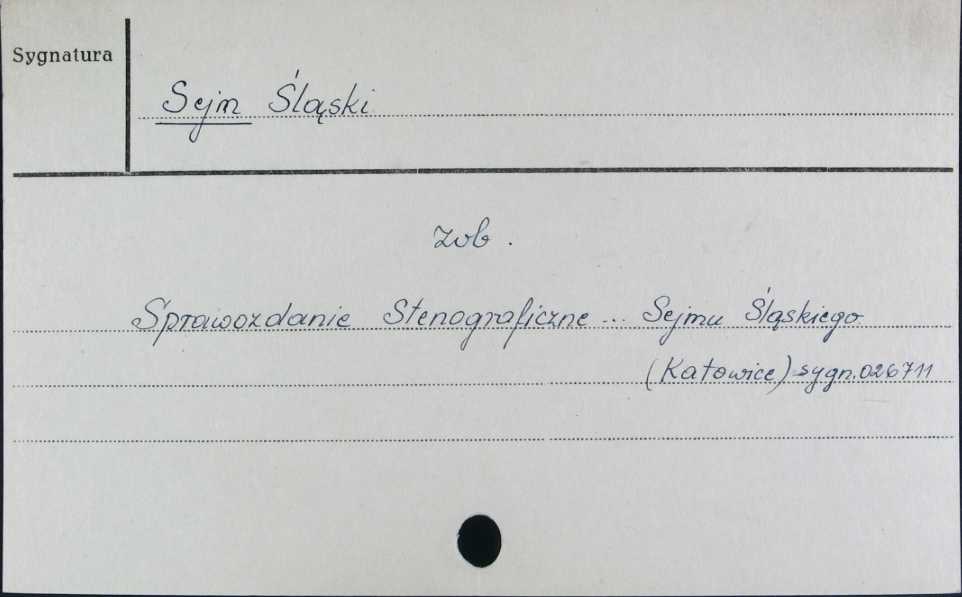 Sygnatura
Sejm Śląski
zob.
Sprawozdanie Stenograficzne ... Sejmu Śląskiego
(Katowice) sygn. 026711